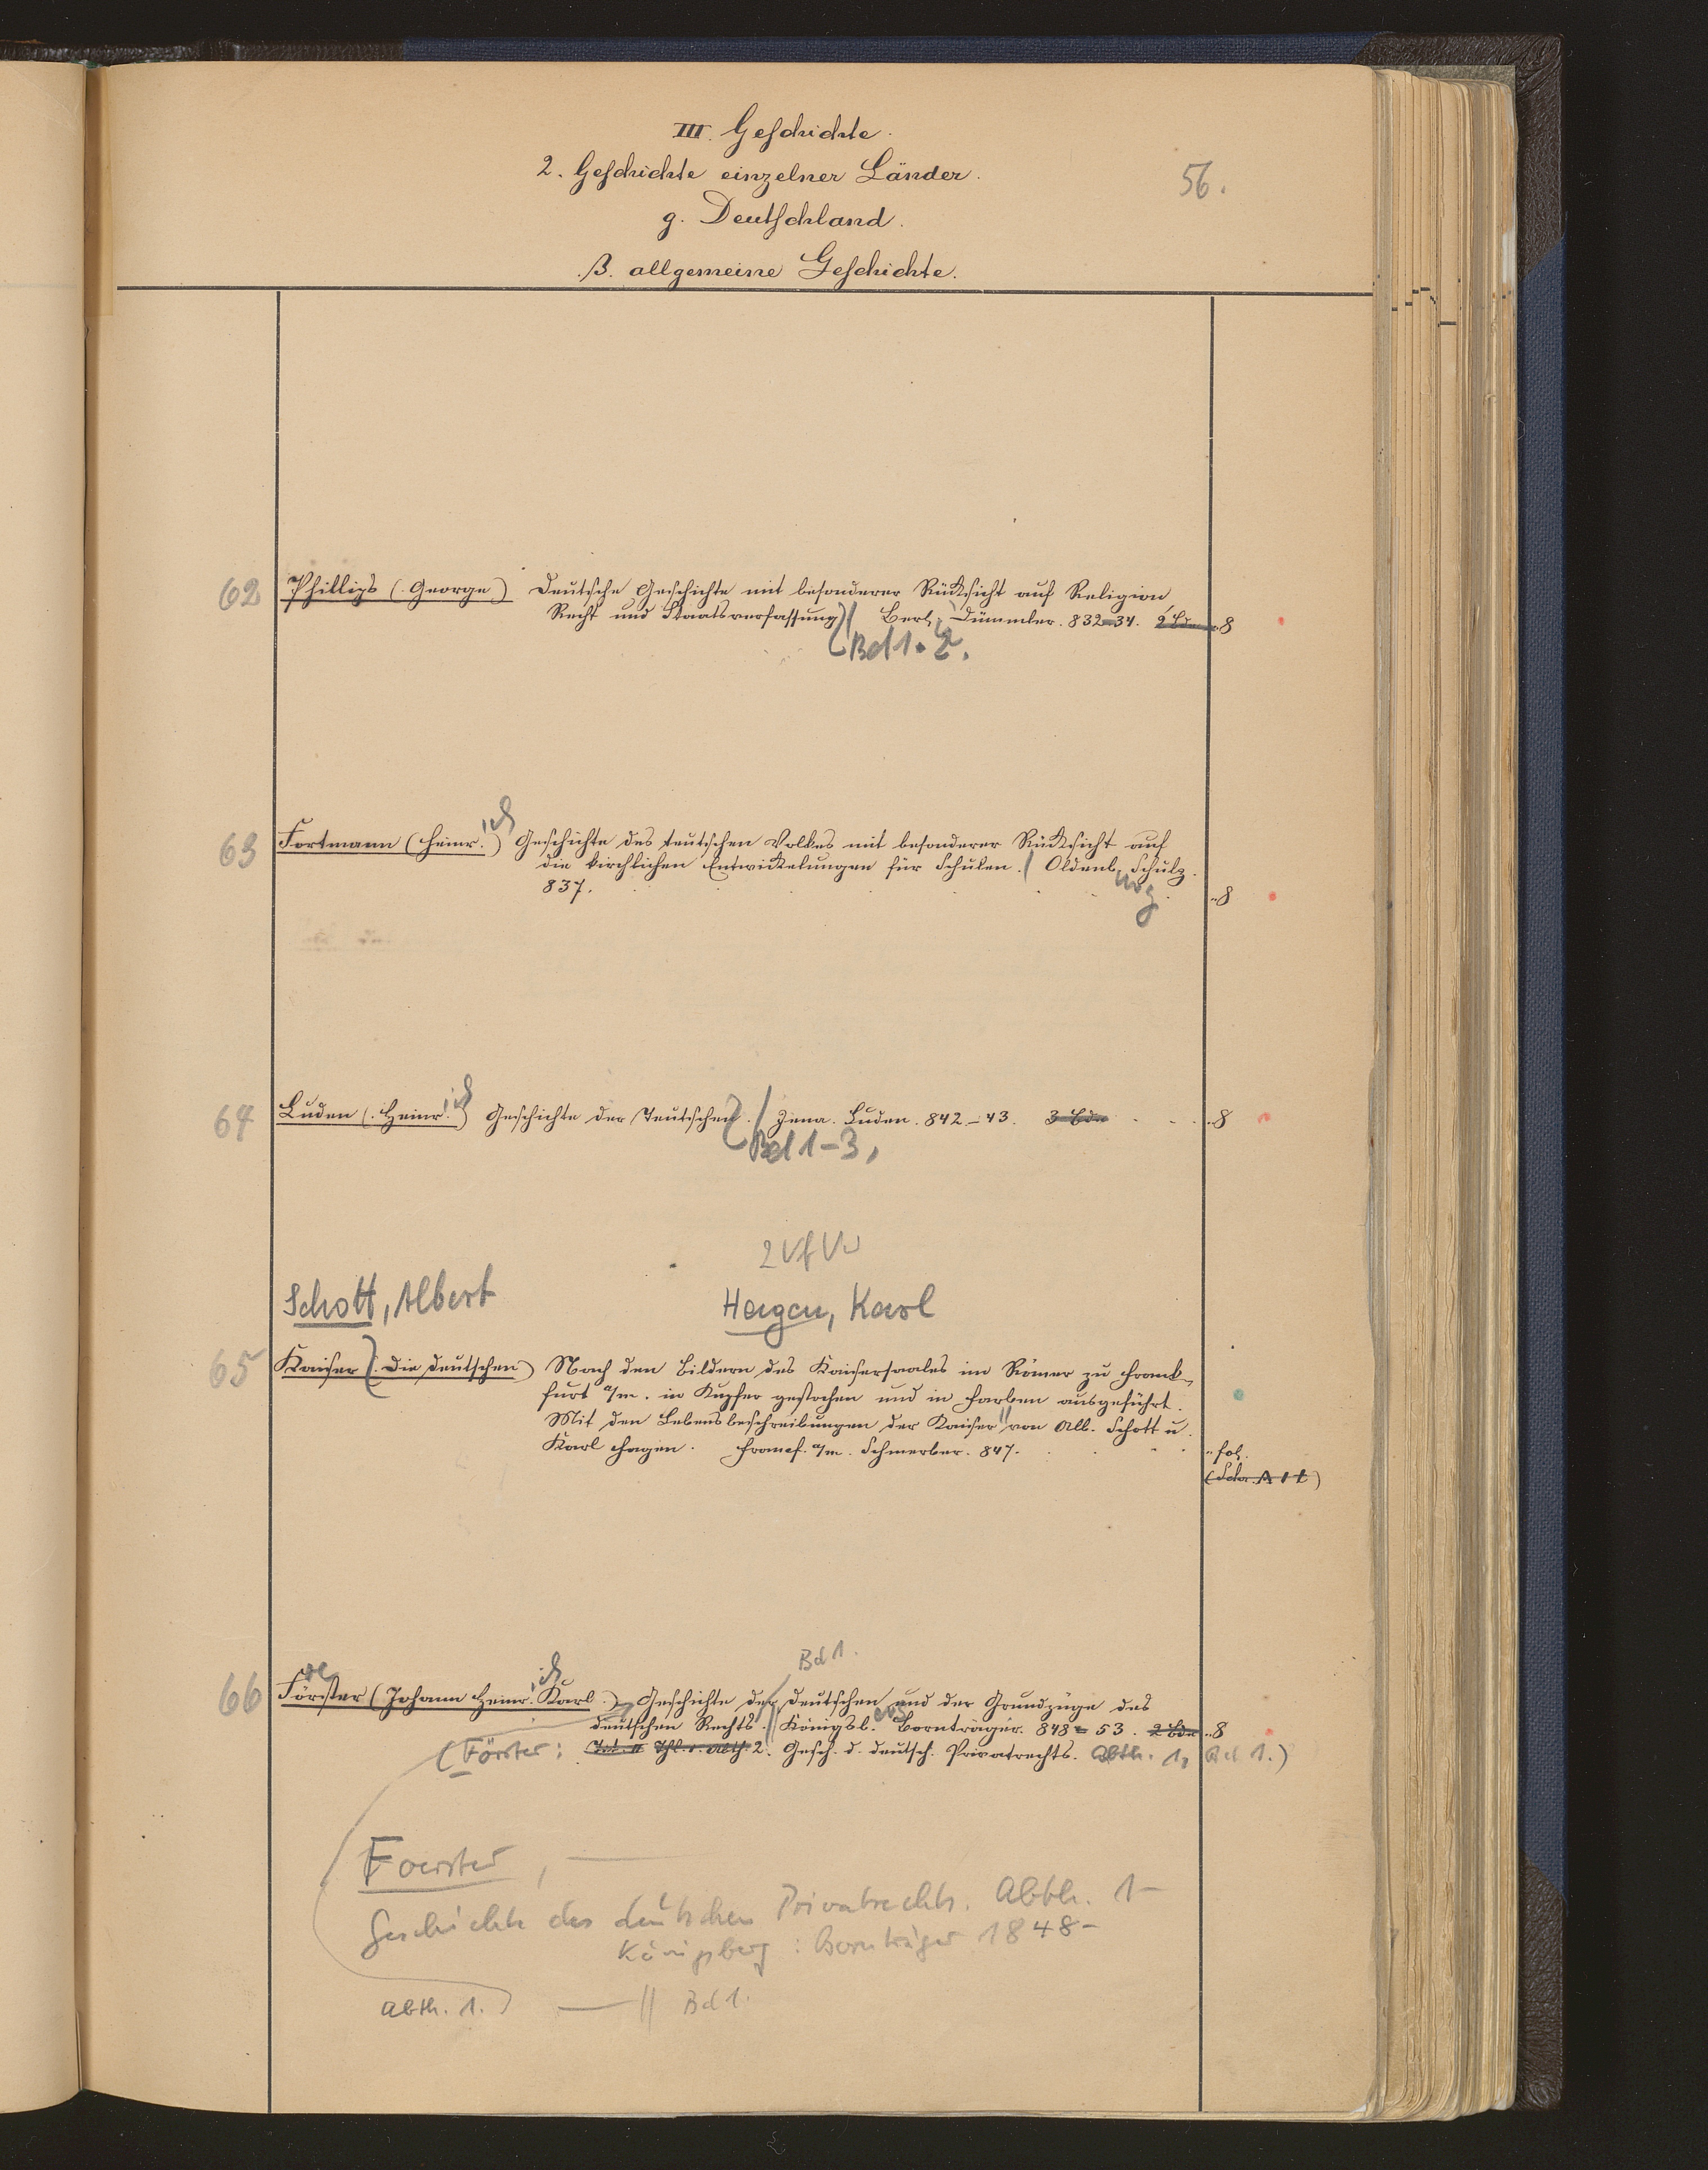 III. Geschichte.
2. Geschichte einzelner Länder.
56.
g. Deutschland.
β. allgemeine Geschichte.
62 Phillips (George) Deutsche Geschichte mit besonderer Rücksicht auf Religion,
Recht und Staatsverfassung) / Berl, Dümmler. 832-34. 2 Bde 8
(Bd 1. 2.
63 Fortmann (Heinr.ich) Geschichte des teutschen Volkes mit besonderer Rücksicht auf
die kirchlichen Entwickelungen für Schulen. / Oldenburg, Schulz.
837. 8
64 Luden (Heinr.ich) Geschichte der Teutschen. / Jena. Luden. 842-43. 3 Bde 8
Bd 1-3,
2 Vf Vw
Schott, Albert Hagen, Karl
65 Kaiser (Die deutschen) Nach den Bildern des Kaisersaales im Römer zu Frank-
furt a/m. in Kupfer gestochen und in Farben ausgeführt.
Mit den Lebensbeschreibungen der Kaiser // von Alb. Schott u.
Karl Hagen. Francf. a/m. Schmerber. 847. fol.
Bd 1.
66 Förster (Johann Heinr.ich Karl.) Geschichte der Deutschen und der Grundzüge des
deutschen Rechts. // Königsb.erg Bornträger. 848-53. 2 Bde 8
(Förster: 2. Gesch. d. deutsch. Privatrechts. Abth. 1, Bd 1.)
Foerster, —
Geschichte des deutschen Privatrechts. Abth. 1-
Königsberg: Bornträger 1848-
Abth. 1.) — // Bd 1.